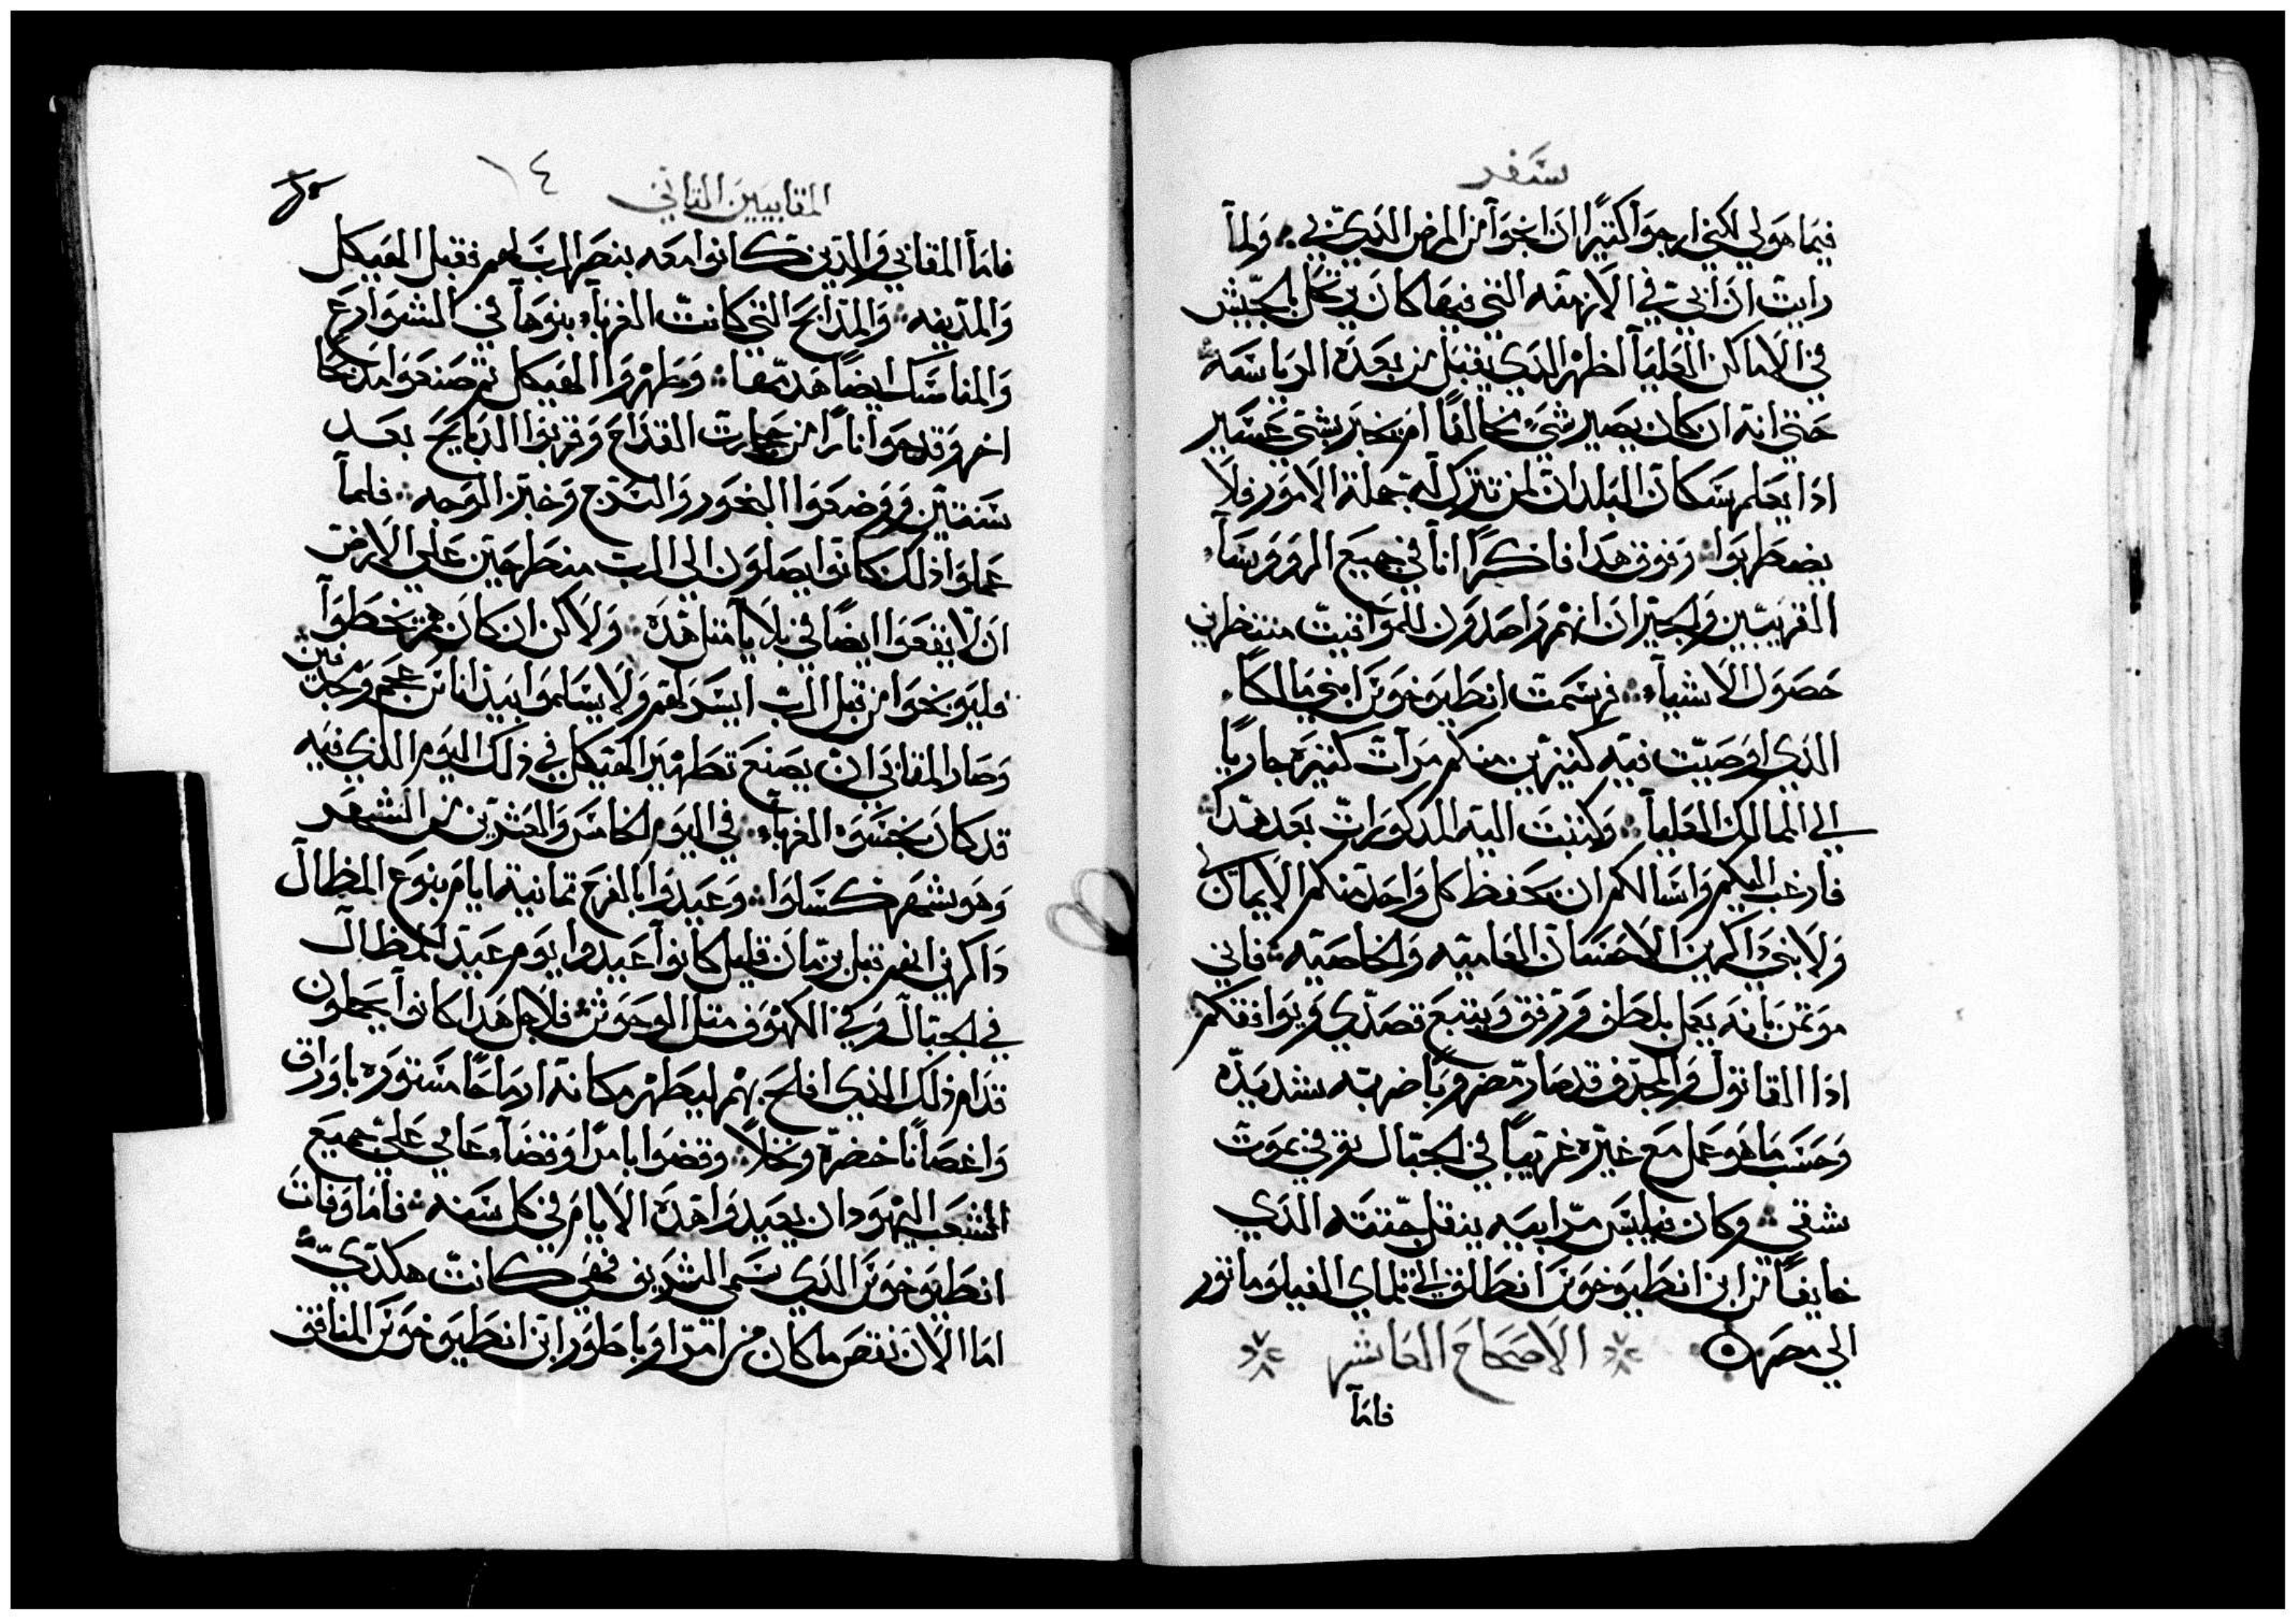 سفر
فيما هولي لكني ارجوا كثيرًا ان انجوا من المرض الذي بي ولما
رايت ان ابي في الازمنه التي فيها كان يرتحل بالجيش
في الاماكن العليا اظهر الذي يقبل من بعده الرياسه
حتي انه ان كان يصير شي مخالفًا او يخبر بشي عسير
اذا يعلم سكان البلدان لمن تترك له جملة الامور فلا
يضطربوا وفوق هذا فاذكرًا انا في جميع الروسا
القريبين والجيران انهم راصدون للمواقيت منتظرين
حصول الاشيا فرسمت انطيوخوس ابني مالكًا
الذي اوصيت فيه كثيرين منكم مرات كثيرة جاريًا
الي الممالك العليا وكتبت اليه المذكورات بعد هذا
فارغب اليكم واسالكم ان يحفظ كل واحد منكم الايمان
ولابني ذاكرين الاحسان العاميه والخاصيه فاني
موتمن بانه يعمل بلطف وترفق ويتبع قصدي ويوافقكم
اذا القاتول والمجدف قد صار مضروبًا ضربه شديده
وحسب ما هو عمل مع غيره غريبًا في الجبال توفي بموت
شقي وكان فيلبس مرابيه ينقل جثته الذي
خايفًا من ابن انطيوخوس انطلق الي تلماي الفيلوماتور
الي مصر الاصحاح العاشر
فاما
المقابيين الثاني ١٤
فاما المقابي والذين كانوا معه بنصر الرب لهم فقبل الهيكل
والمدينه والمذابح التي كانت الغربا بنوها في الشوارع
والمناسك ايضًا هدمها وطهروا الهيكل ثم صنعوا مذبحًا
اخر وقدحوا نارًا من حجارت القداح وقربوا الذبايح بعد
سنتين ووضعوا البخور والسرج وخبز الوجه فلما
عملوا ذلك كانوا يصلون الي الرب منطرحين علي الارض
ان لا يقعوا ايضًا في بلايا مثل هذه ولاكن ان كان هم يخطوا
فليوبخوا من قبل الرب ايسر لهم ولا يسلموا بيد اناس عجم ومجدفين
وصار المقابي ان يصنع تطهير الهيكل في ذلك اليوم الذي فيه
قد كان نجسوه الغربا في اليوم الخامس والعشرين من الشهر
وهو شهر كسلوا وعيدوا بالفرح ثمانية ايام بنوع المظال
ذاكرين انهم قبل زمان قليل كانوا عيدوا يوم عيد المظال
في الجبال وفي الكهوف مثل الوحوش فلاجل هذا كانوا يحملون
قدام ذلك الذي افلح بهم ليطهر مكانه ارماحًا مستوره باوراق
واغصانًا خضرة ونخلاً وقضوا بامرًا وقضا عامي علي جميع
الشعب اليهود ان يعيدوا هذه الايام في كل سنه فاما وفات
انطيوخوس الذي سمي الشريف فهي كانت هكذي
اما الان نقص ما كان من امر اوباطور ابن انطيوخوس المنافق